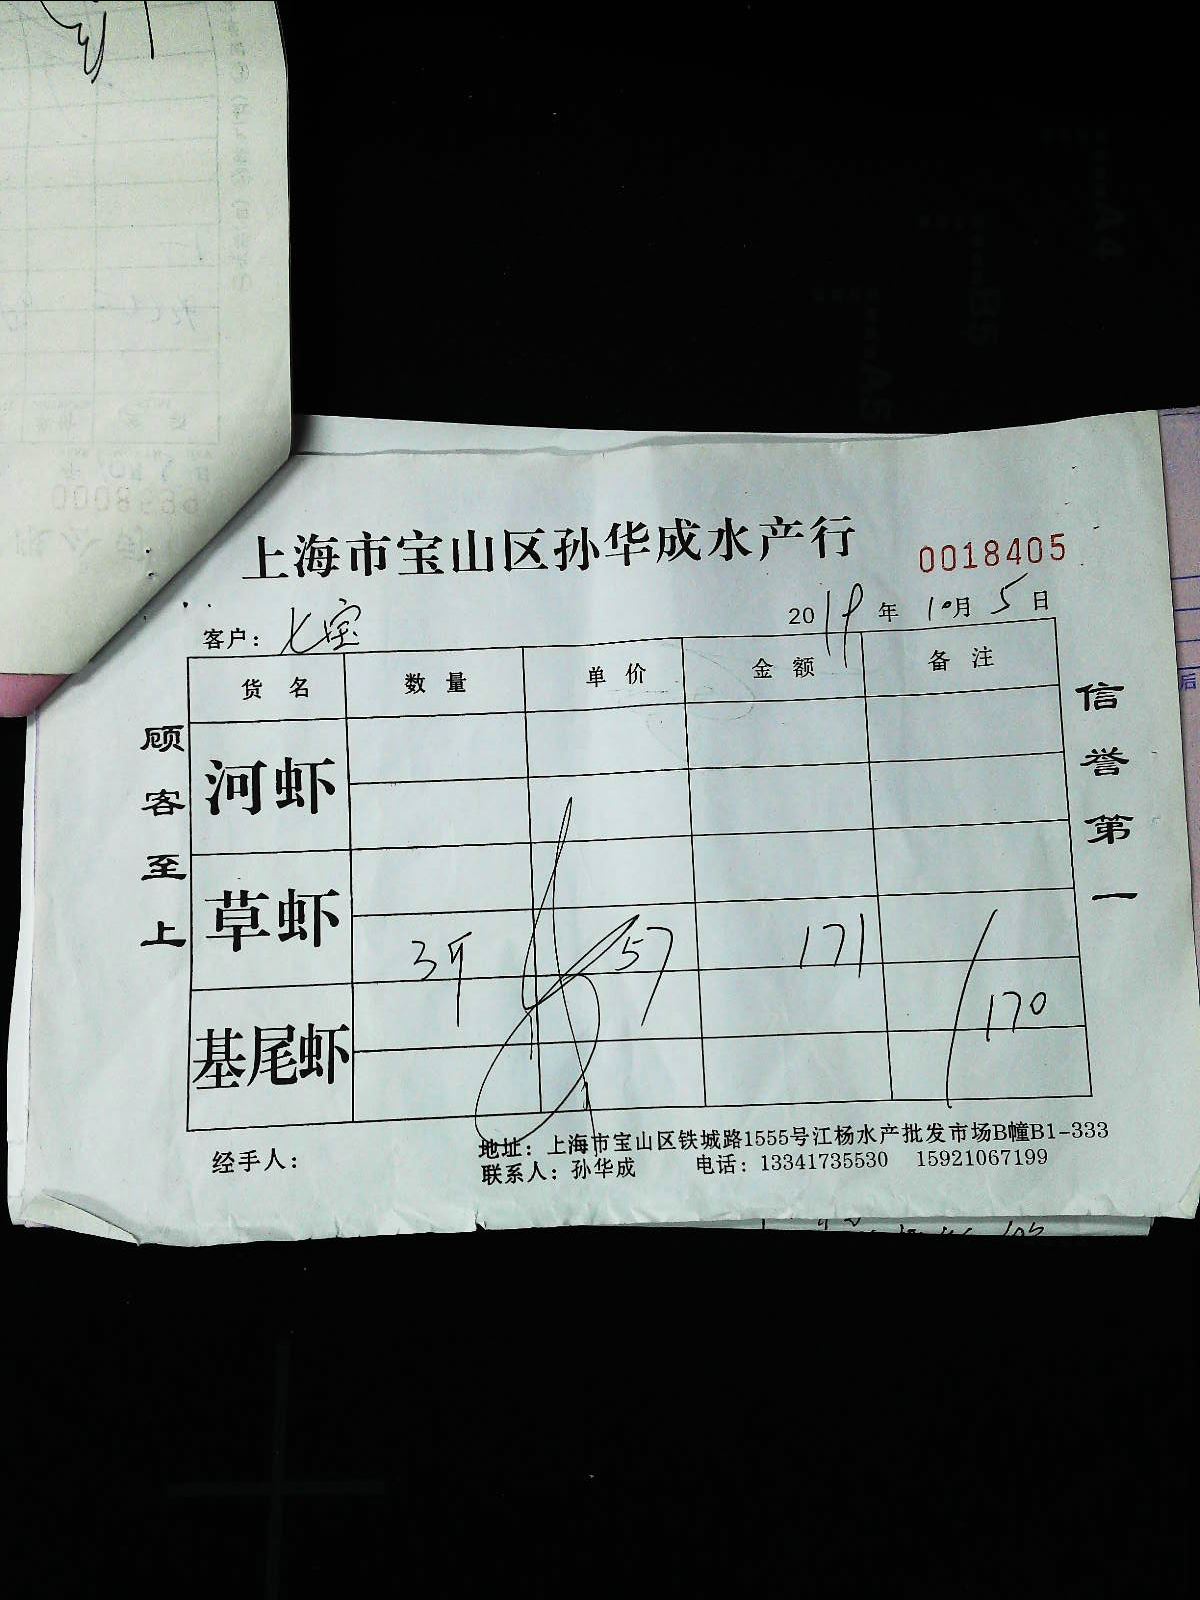 上海市宝山区孙华成水产行
0018405
客户：七宝
2019年10月5日
货名 数量 单价 金额 备注
河虾
草虾
3斤 57 171
170
基尾虾
顾客至上
信誉第一
经手人：
地址：上海市宝山区铁城路1555号江杨水产批发市场B幢B1-333
联系人：孙华成 电话：13341735530 15921067199
A4
B5
A5